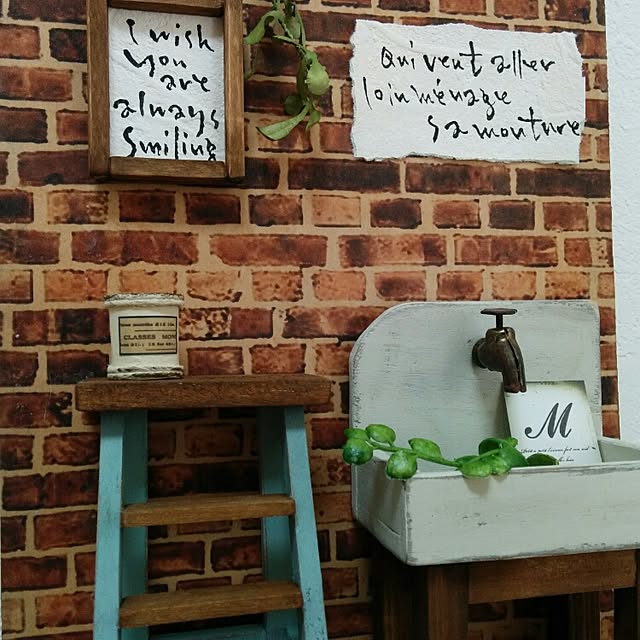 I wish
you
are
always
Smiling
Qui veut aller
loin ménage
sa monture
CLASSES MON
M